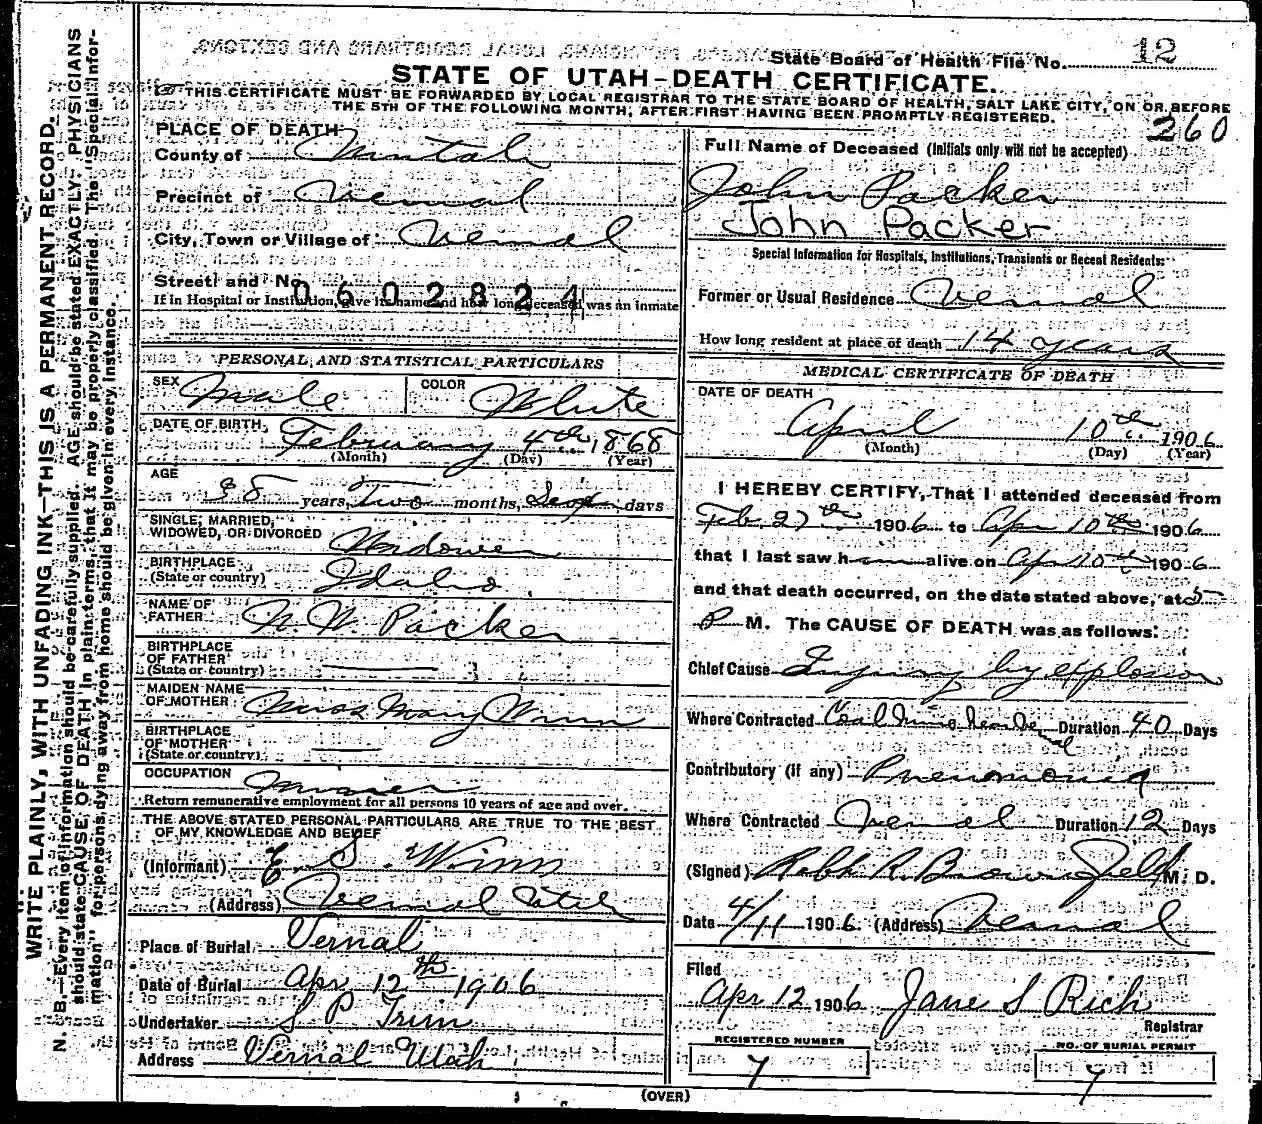 State Board of Health File No. 12
STATE OF UTAH—DEATH CERTIFICATE.
THIS CERTIFICATE MUST BE FORWARDED BY LOCAL REGISTRAR TO THE STATE BOARD OF HEALTH, SALT LAKE CITY, ON OR BEFORE
THE 5TH OF THE FOLLOWING MONTH, AFTER FIRST HAVING BEEN PROMPTLY REGISTERED.
260
WRITE PLAINLY, WITH UNFADING INK—THIS IS A PERMANENT RECORD.
N. B.—Every item of information should be carefully supplied. AGE should be stated EXACTLY. PHYSICIANS
should state CAUSE OF DEATH in plain terms, that it may be properly classified. The "Special Infor-
mation" for persons dying away from home should be given in every instance.
PLACE OF DEATH
County of Uintah
Precinct of Vernal
City, Town or Village of Vernal
Street and No.
0602824
If in Hospital or Institution, give its name and how long deceased was an inmate
PERSONAL AND STATISTICAL PARTICULARS
SEX Male COLOR White
DATE OF BIRTH, February 4th, 1868
(Month) (Day) (Year)
AGE
38 years, Two months, days
SINGLE, MARRIED,
WIDOWED, OR DIVORCED Widower
BIRTHPLACE
(State or country) Idaho
NAME OF
FATHER Packer
BIRTHPLACE
OF FATHER
(State or country)
MAIDEN NAME
OF MOTHER Miss Mary Winn
BIRTHPLACE
OF MOTHER
(State or country)
OCCUPATION Miner
Return remunerative employment for all persons 10 years of age and over.
THE ABOVE STATED PERSONAL PARTICULARS ARE TRUE TO THE BEST
OF MY KNOWLEDGE AND BELIEF
(Informant) E. S. Winn
(Address) Vernal Utah
Place of Burial Vernal
Date of Burial Apr 12th 1906
Undertaker S P Trim
Address Vernal Utah
Full Name of Deceased (Initials only will not be accepted)
John Packer
John Packer
Special Information for Hospitals, Institutions, Transients or Recent Residents:
Former or Usual Residence Vernal
How long resident at place of death 14 years
MEDICAL CERTIFICATE OF DEATH
DATE OF DEATH
April 10th 1906
(Month) (Day) (Year)
I HEREBY CERTIFY, That I attended deceased from
Feb. 27th 1906 to Apr 10th 1906
that I last saw h im alive on Apr 10th 1906
and that death occurred, on the date stated above, at 5
P M. The CAUSE OF DEATH was as follows:
Chief Cause Injury by explosion
Where Contracted Coal Mine near Vernal Duration 40 Days
Contributory (if any) Pneumonia
Where Contracted Vernal Duration 12 Days
(Signed) M. D.
Date 4/11 1906 (Address) Vernal
Filed
Apr 12 1906 Jane S Rich
Registrar
REGISTERED NUMBER
7
NO. OF BURIAL PERMIT
7
(OVER)